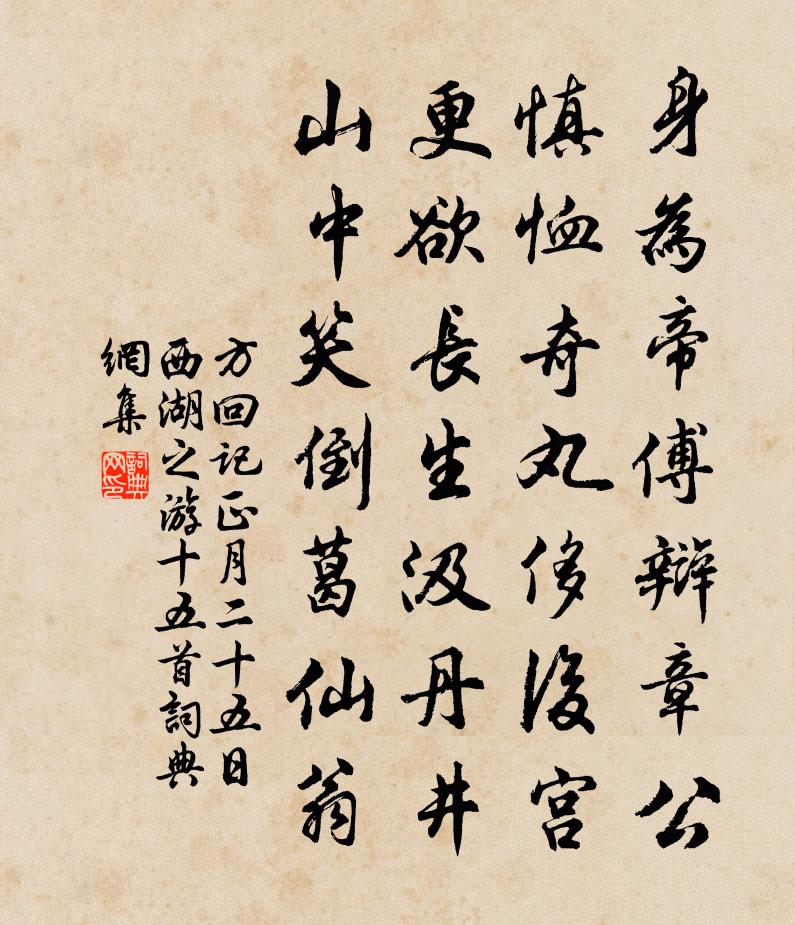 身為帝傅辯章公
慎恤奇丸侈後宮
更欲長生汲丹井
山中笑倒葛仙翁
方回记正月二十五日
西湖之游十五首詞典
網集
詞典
网印